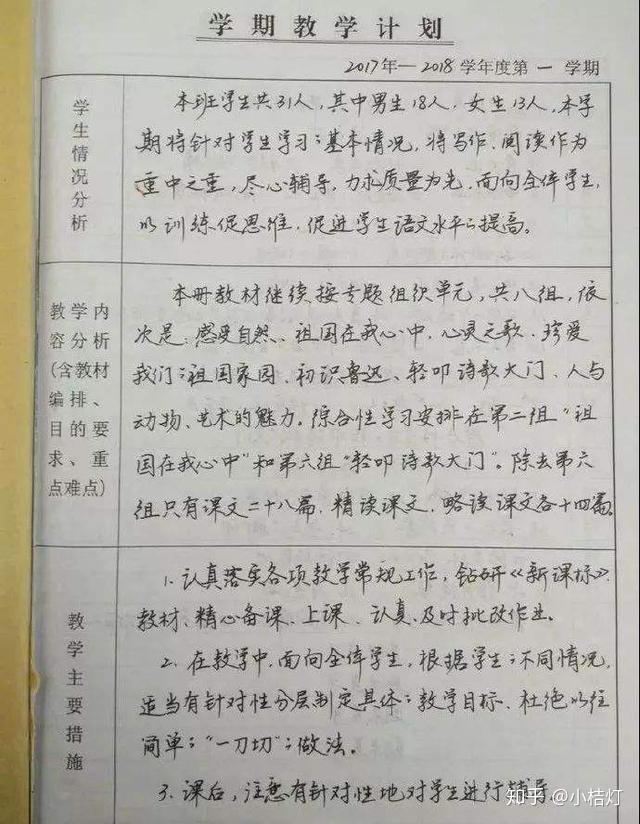 学期教学计划
2017年—2018学年度第一学期
学生情况分析
本班学生共31人，其中男生18人，女生13人，本学
期将针对学生学习的基本情况，将写作、阅读作为
重中之重，尽心辅导，力求质量为先，面向全体学生，
以训练促思维，促进学生语文水平的提高。
教学内
容分析
(含教材
编排、
目的要
求、重
点难点)
本册教材继续按专题组织单元，共八组，依
次是：感受自然、祖国在我心中、心灵之歌、珍爱
我们的祖国家园、初识鲁迅、轻叩诗歌大门、人与
动物、艺术的魅力。综合性学习安排在第二组“祖
国在我心中”和第六组“轻叩诗歌大门”。除去第六
组只有课文二十八篇，精读课文、略读课文各十四篇。
教学主要措施
1、认真落实各项教学常规工作，钻研《新课标》、
教材、精心备课、上课、认真、及时批改作业。
2、在教学中，面向全体学生，根据学生的不同情况，
适当有针对性分层制定具体的教学目标、杜绝以往
简单的“一刀切”的做法。
3、课后，注意有针对性地对学生进行辅导。
知乎 @小桔灯